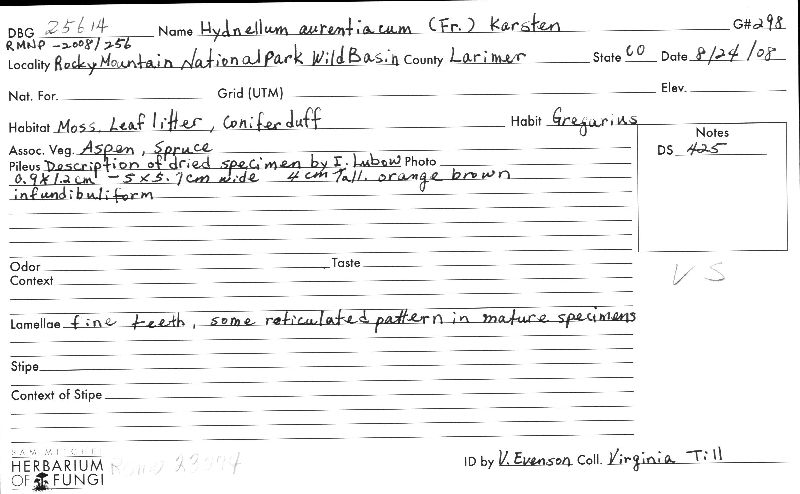 DBG 25614 Name Hydnellum aurentiacum (Fr.) Karsten G#298
RMNP -2008/256
Locality Rocky Mountain National Park Wild Basin County Larimer State CO Date 8/24/08
Nat. For. Grid (UTM) Elev.
Habitat Moss, Leaf litter, Conifer duff Habit Gregarius
Notes
Assoc. Veg. Aspen, Spruce
DS 425
Pileus Description of dried specimen by I. Lubow Photo
0.9 x 1.2 cm - 5 x 5.7cm wide 4 cm Tall. orange brown
infundibuliform
Odor Taste
Context
VS
Lamellae fine teeth, some reticulated pattern in mature specimens
Stipe
Context of Stipe
SAM MITCHEL
HERBARIUM
OF FUNGI
ID by V. Evenson Coll. Virginia Till